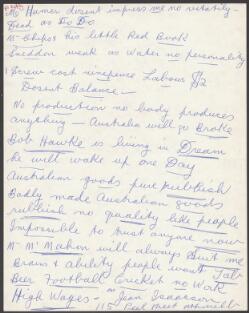 Mr Humer doesnt impress me no vitality –
Dead as Do Do
Mr Chipps his little Red Book
Snedden weak as water no personality
Screw cost risepence Labour $2
Doesnt Balance –
No production no body produces
anything – Australia will go Broke
Bob Hawke is living in Dream
he will wake up one Day
Australian goods pure rubbish
Badly made Australian goods
rubbish no quality like people
Impossible to trust anyone now
Mr McMahon will always Suit me
Brains & ability people want Tab
Beer Football Cricket no Work
High Wages – Jean Isaacson